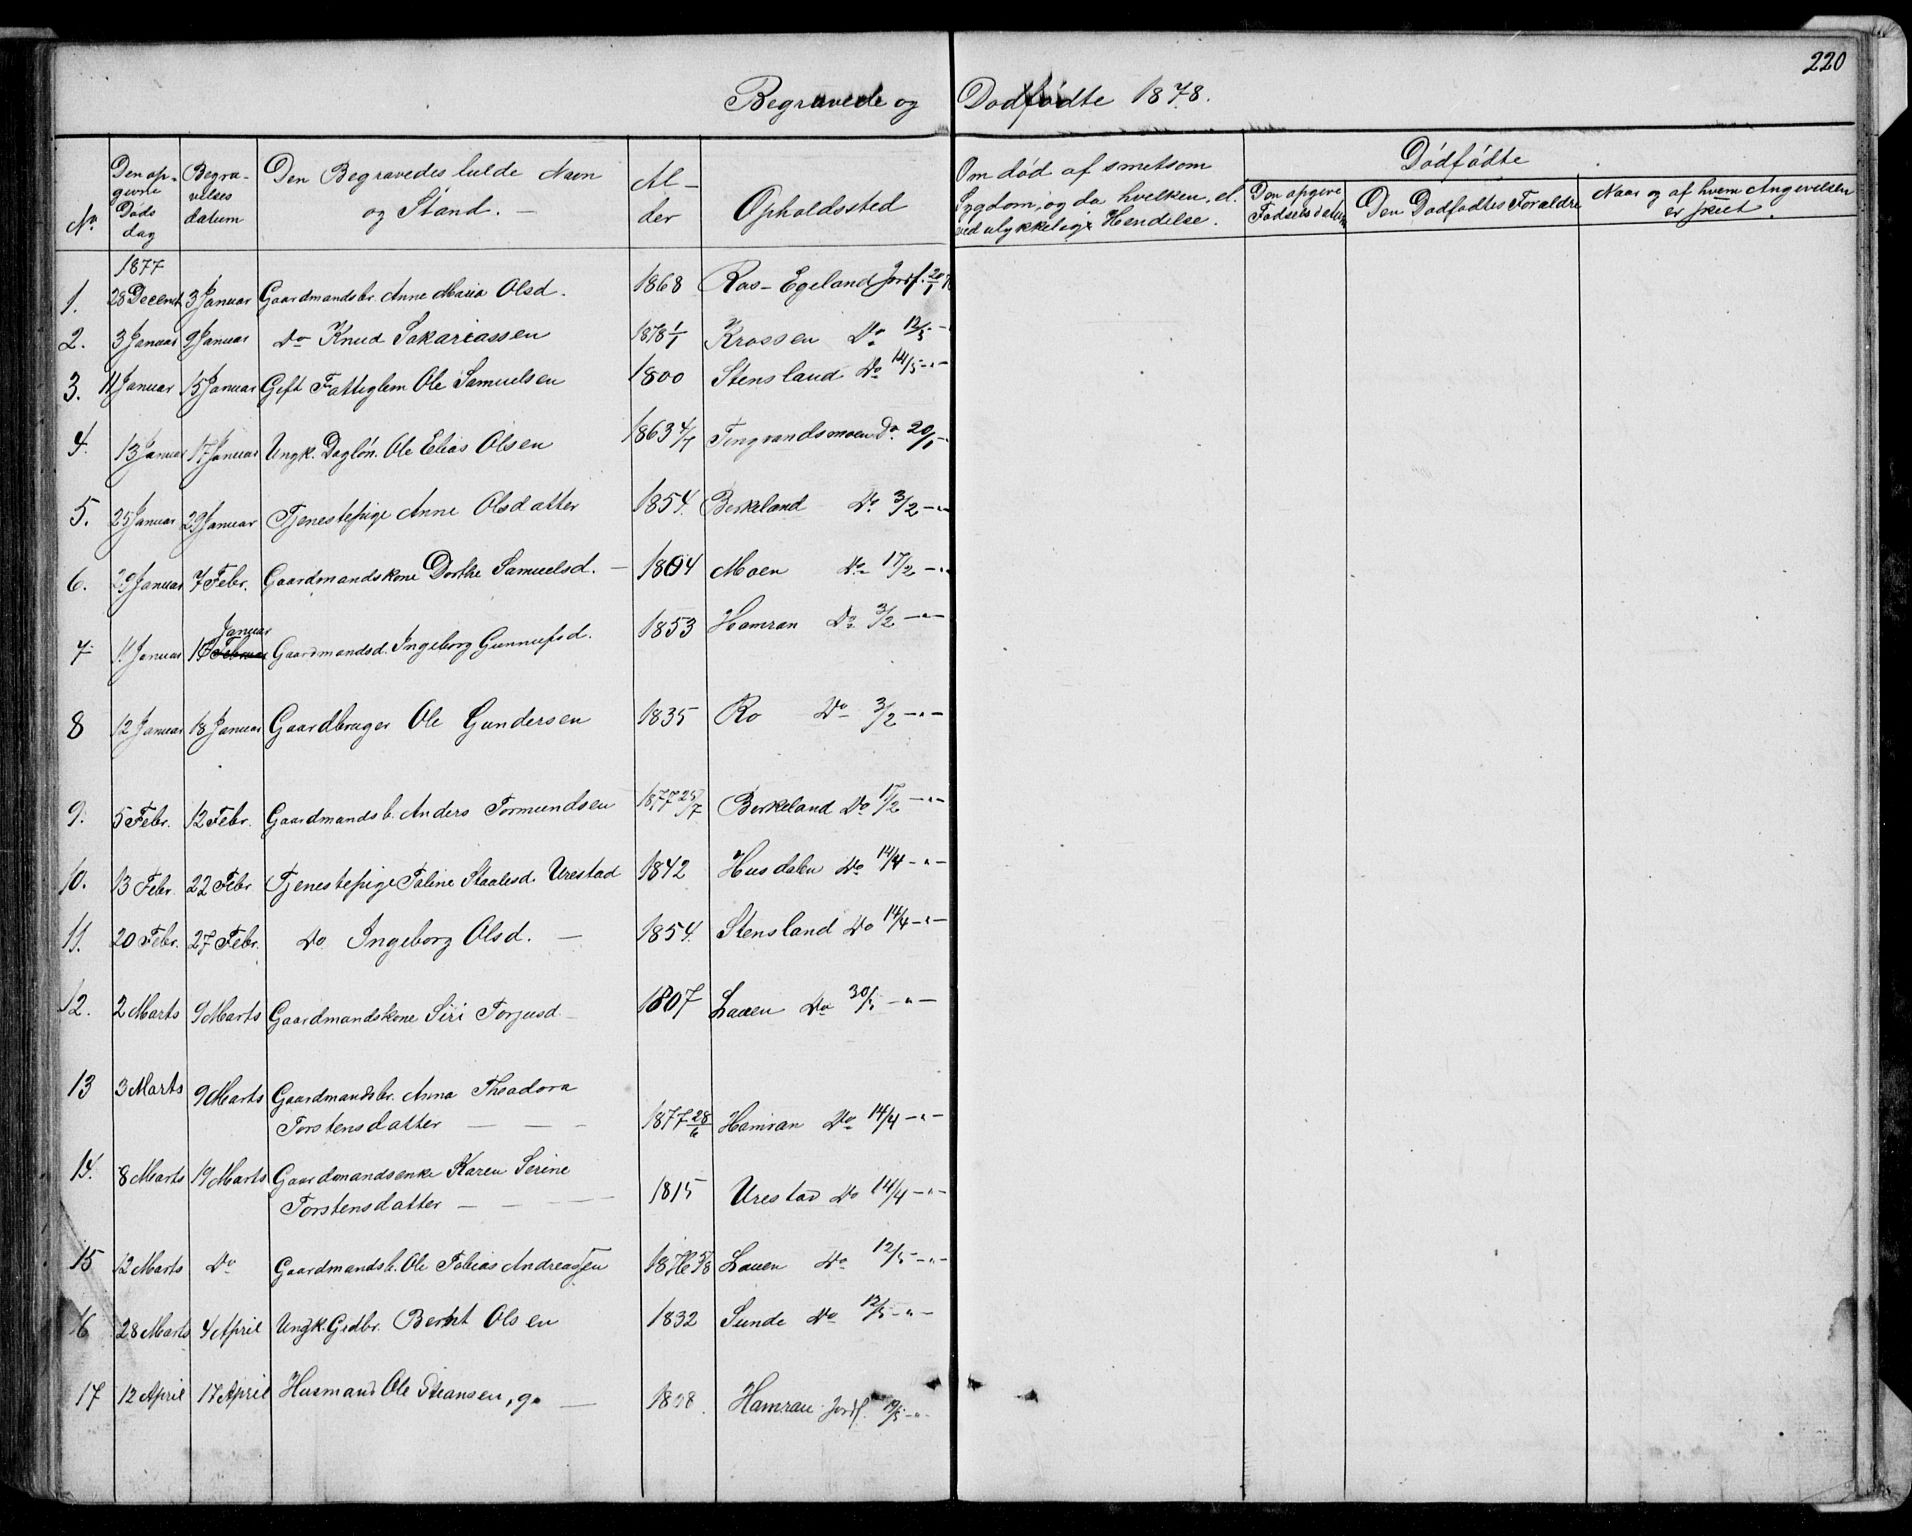 220
Begravede og Dødfødte 1878.
No. Den opgivne Døds dag Begravelses datum Den Begravedes fulde Navn og Stand. Alder Opholdssted Om død af smetsom Sygdom, og da hvelken, el. ved ulykkelige Hendelse. Dødfødte Den opgivne Fødselsdatum Den Dødfødtes Foraldre Naar og af hvem Angivelsen er skeet.
1877
1. 28 Decemb 3 Januar Gaardmandsbr. Anne Maria Olsd. 1868 Ros-Egeland Jordf. 20/1
2. 3 Januar 9 Januar Do Knud Sakariassen 1878 1/1 Krossen Do 12/5 -"-
3. 11 Januar 15 Januar Gift Fattiglem Ole Samuelsen 1800 Stensland Do 14/5 -"-
4. 13 Januar 17 Januar Ungk. Dagløn. Ole Elias Olsen 1863 Tingvandsmoen Do. 20/1 -
5. 25 Januar 29 Januar Tjenestepige Anne Olsdatter 1854 Birkeland Do 3/2 -"-
6. 29 Januar 7 Febr. Gaardmandskone Dorthe Samuelsd. - 1804 Moen Do 17/2 -"-
Januar
7 11 Januar 17 Februar Gaardmandsd. Ingeborg Gunnufsd. 1853 Hamran Do 3/2 -"-
8 12 Januar 18 Januar Gaardbruger Ole Gundersen 1835 Ro Do 3/2 -"-
9. 5 Febr. 12 Febr. Gaardmandsb. Anders Tormundsen 1877 25/7 Birkeland Do 17/2 -"-
10. 13 Febr. 22 Febr. Tjenestepige Taline Staalesd. Urestad 1842 Husdalen Do 14/4 -"-
11. 20 Febr. 27 Febr. Do Ingeborg Olsd. - 1854. Stensland Do 14/4 -"-
12. 2 Marts 9 Marts Gaardmandskone Siri Torjusd. - 1807 Lauen Do 30/5 -"-
13 3 Marts 9 Marts Gaardmandsbr. Anna Theodora
Torstensdatter - - - 1877 28/6 Hamran Do 14/4 -"-
14. 8 Marts 19 Marts Gaardmandsenke Karen Serine
Torstensdatter - - - 1815 Urestad Do 14/4 -"-
15 12 Marts Do Gaardmandsb. Ole Tobias Andreassen Lauen Do 12/5 -"-
16 28 Marts 4 April Ungk. Grdbr. Bernt Olsen 1832 Sunde Do 12/5 -"-
17 12 April 17 April Husmand Ole Steansen, g. - 1808 Hamran Jordf. 19/5 -"-